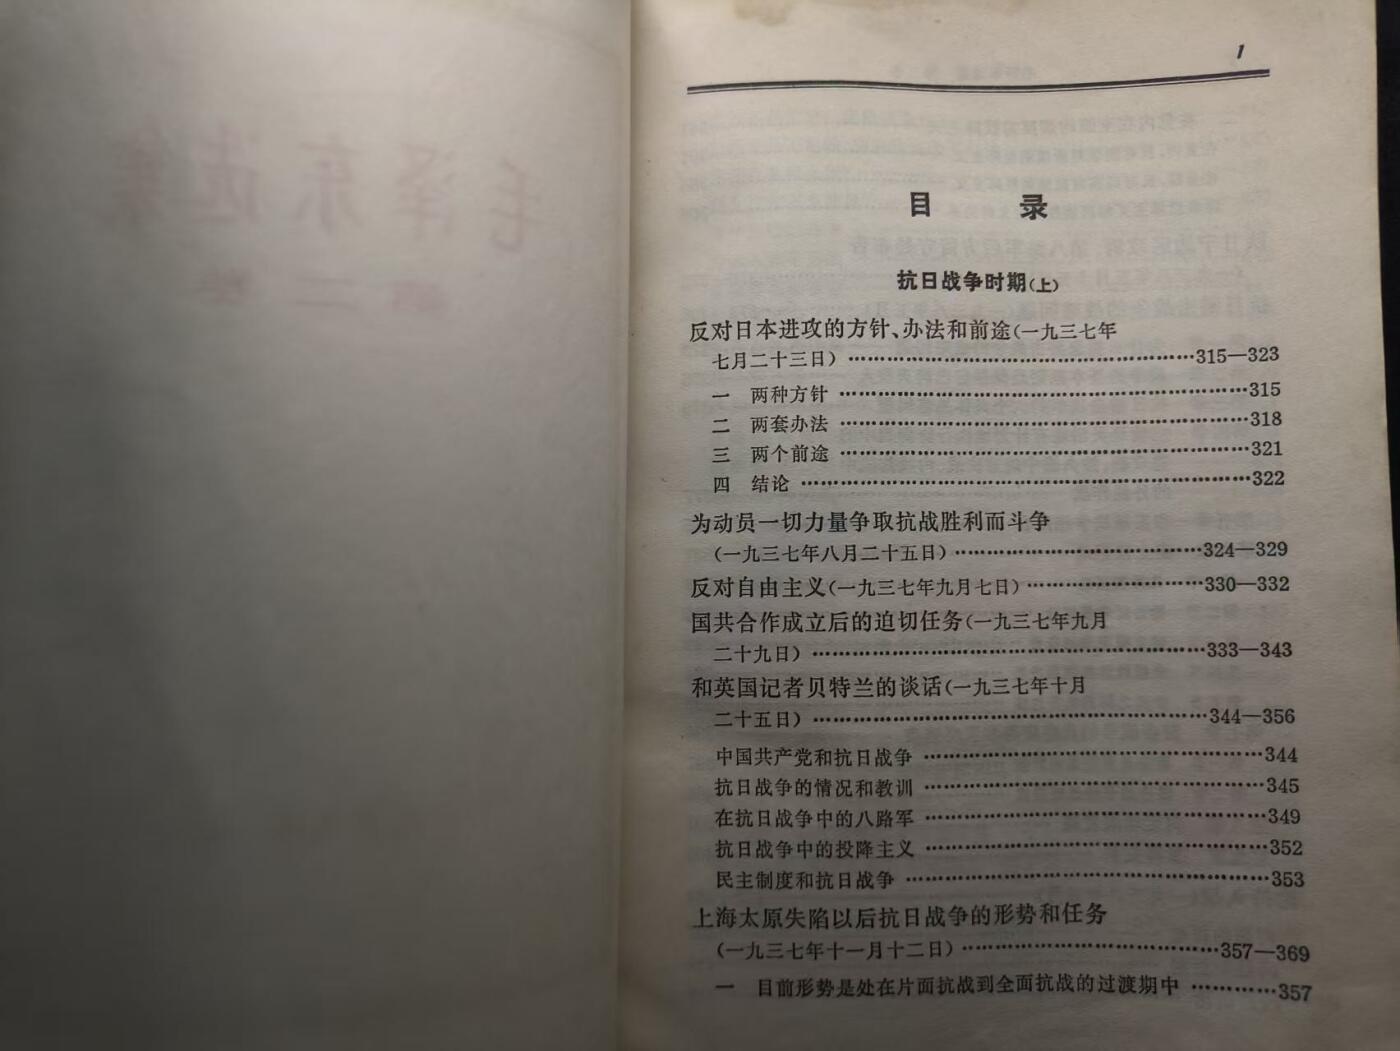 毛泽东选集
1
目 录
抗日战争时期(上)
反对日本进攻的方针、办法和前途(一九三七年
七月二十三日)……………………………………315—323
一 两种方针……………………………………………315
二 两套办法……………………………………………318
三 两个前途……………………………………………321
四 结论…………………………………………………322
为动员一切力量争取抗战胜利而斗争
(一九三七年八月二十五日)…………………………324—329
反对自由主义(一九三七年九月七日)…………………330—332
国共合作成立后的迫切任务(一九三七年九月
二十九日)…………………………………………333—343
和英国记者贝特兰的谈话(一九三七年十月
二十五日)…………………………………………344—356
中国共产党和抗日战争…………………………………344
抗日战争的情况和教训…………………………………345
在抗日战争中的八路军…………………………………349
抗日战争中的投降主义…………………………………352
民主制度和抗日战争……………………………………353
上海太原失陷以后抗日战争的形势和任务
(一九三七年十一月十二日)…………………………357—369
一 目前形势是处在片面抗战到全面抗战的过渡期中…………357